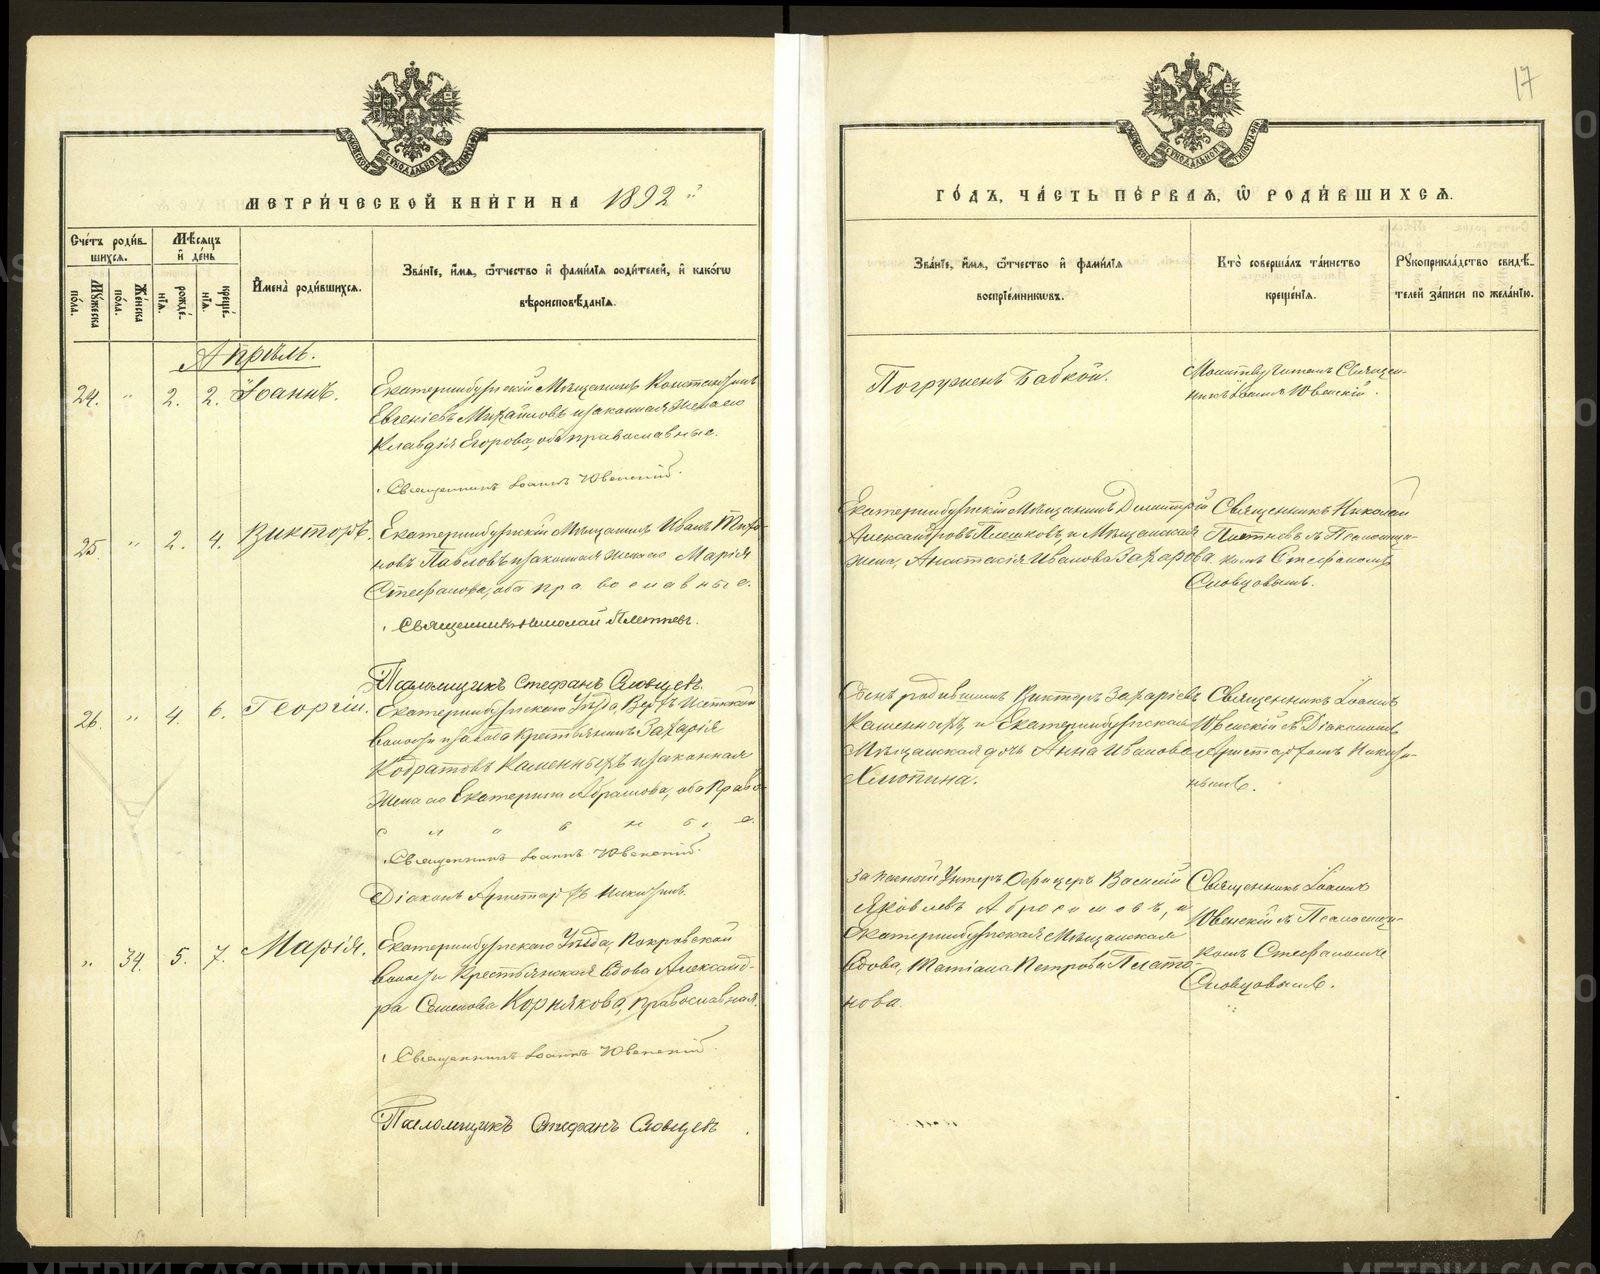 17
МЕТРИ́ЧЕСКОЙ КНИ́ГИ НА 1892
Сче́тъ роди́в-
шихсѧ.
Мѣ́сѧцъ
и҆ де́нь
Мꙋ́жеска по́ла.
Же́нска по́ла.
рожде́-
нїѧ.
креще́-
нїѧ.
И҆мена̀ роди́вшихсѧ.
Зва́нїе, и҆́мѧ, ѻ҆́тчество и҆ фами́лїѧ роди́телей, и҆ како́гѡ
вѣроисповѣ́данїѧ.
Апрѣль.
24. " 2. 2. Іоаннъ.
Екатеринбургскій Мѣщанинъ Константинъ
Евгеніевъ Михайловъ и законная жена его
Клавдія Егорова, оба православные.
Священникъ Іоаннъ Ювенскій.
25. " 2. 4. Викторъ.
Екатеринбургскій Мѣщанинъ Иванъ
Павловъ и законная жена его Марія
Стефанова, оба православные.
Священникъ Николай Плетневъ.
Псаломщикъ Стефанъ Словцевъ.
26. " 4. 6. Георгій.
Екатеринбургскаго Уѣзда, Верхъ-Исетской
волости и завода Крестьянинъ Захарія
Кодратовъ Каменныхъ и законная
жена его Екатерина Абрамова, оба Право-
славные.
Священникъ Іоаннъ Ювенскій.
Діаконъ Аристархъ Никитинъ.
" 34. 5. 7. Марія.
Екатеринбургскаго Уѣзда, Покровской
волости Крестьянская вдова Александ-
ра Семенова Корнякова, православная.
Священникъ Іоаннъ Ювенскій.
Псаломщикъ Стефанъ Словцевъ
ГО́ДЪ, ЧА́СТЬ ПЕ́РВАѦ, Ѡ҆ РОДИ́ВШИХСѦ.
Зва́нїе, и҆́мѧ, ѻ҆́тчество и҆ фами́лїѧ
воспрїе́мникѡвъ.
Кто̀ соверша́лъ та́инство
креще́нїѧ.
Рꙋкоприкла́дство свидѣ́-
телей за́писи по жела́нїю.
Погруженъ Бабкой.
Молитву читалъ Священ-
никъ Іоаннъ Ювенскій.
Екатеринбургскій Мѣщанинъ Димитрій
Александровъ Плешковъ, и Мѣщанская
жена, Анастасія Иванова Захарова.
Священникъ Николай
Плетневъ съ Псаломщи-
комъ Стефаномъ
Словцовымъ.
Сынъ родившихъ Викторъ Захаріевъ
Каменныхъ, и Екатеринбургская
Мѣщанская дочь Анна Иванова
Хлопина.
Священникъ Іоаннъ
Ювенскій съ Діакономъ
Аристархомъ Никити-
нымъ.
Запасной Унтеръ Офицеръ Василій
Яковлевъ Абросимовъ, и
Екатеринбургская Мѣщанская
вдова, Татіана Петрова Плато-
нова.
Священникъ Іоаннъ
Ювенскій съ Псаломщи-
комъ Стефаномъ
Словцовымъ.